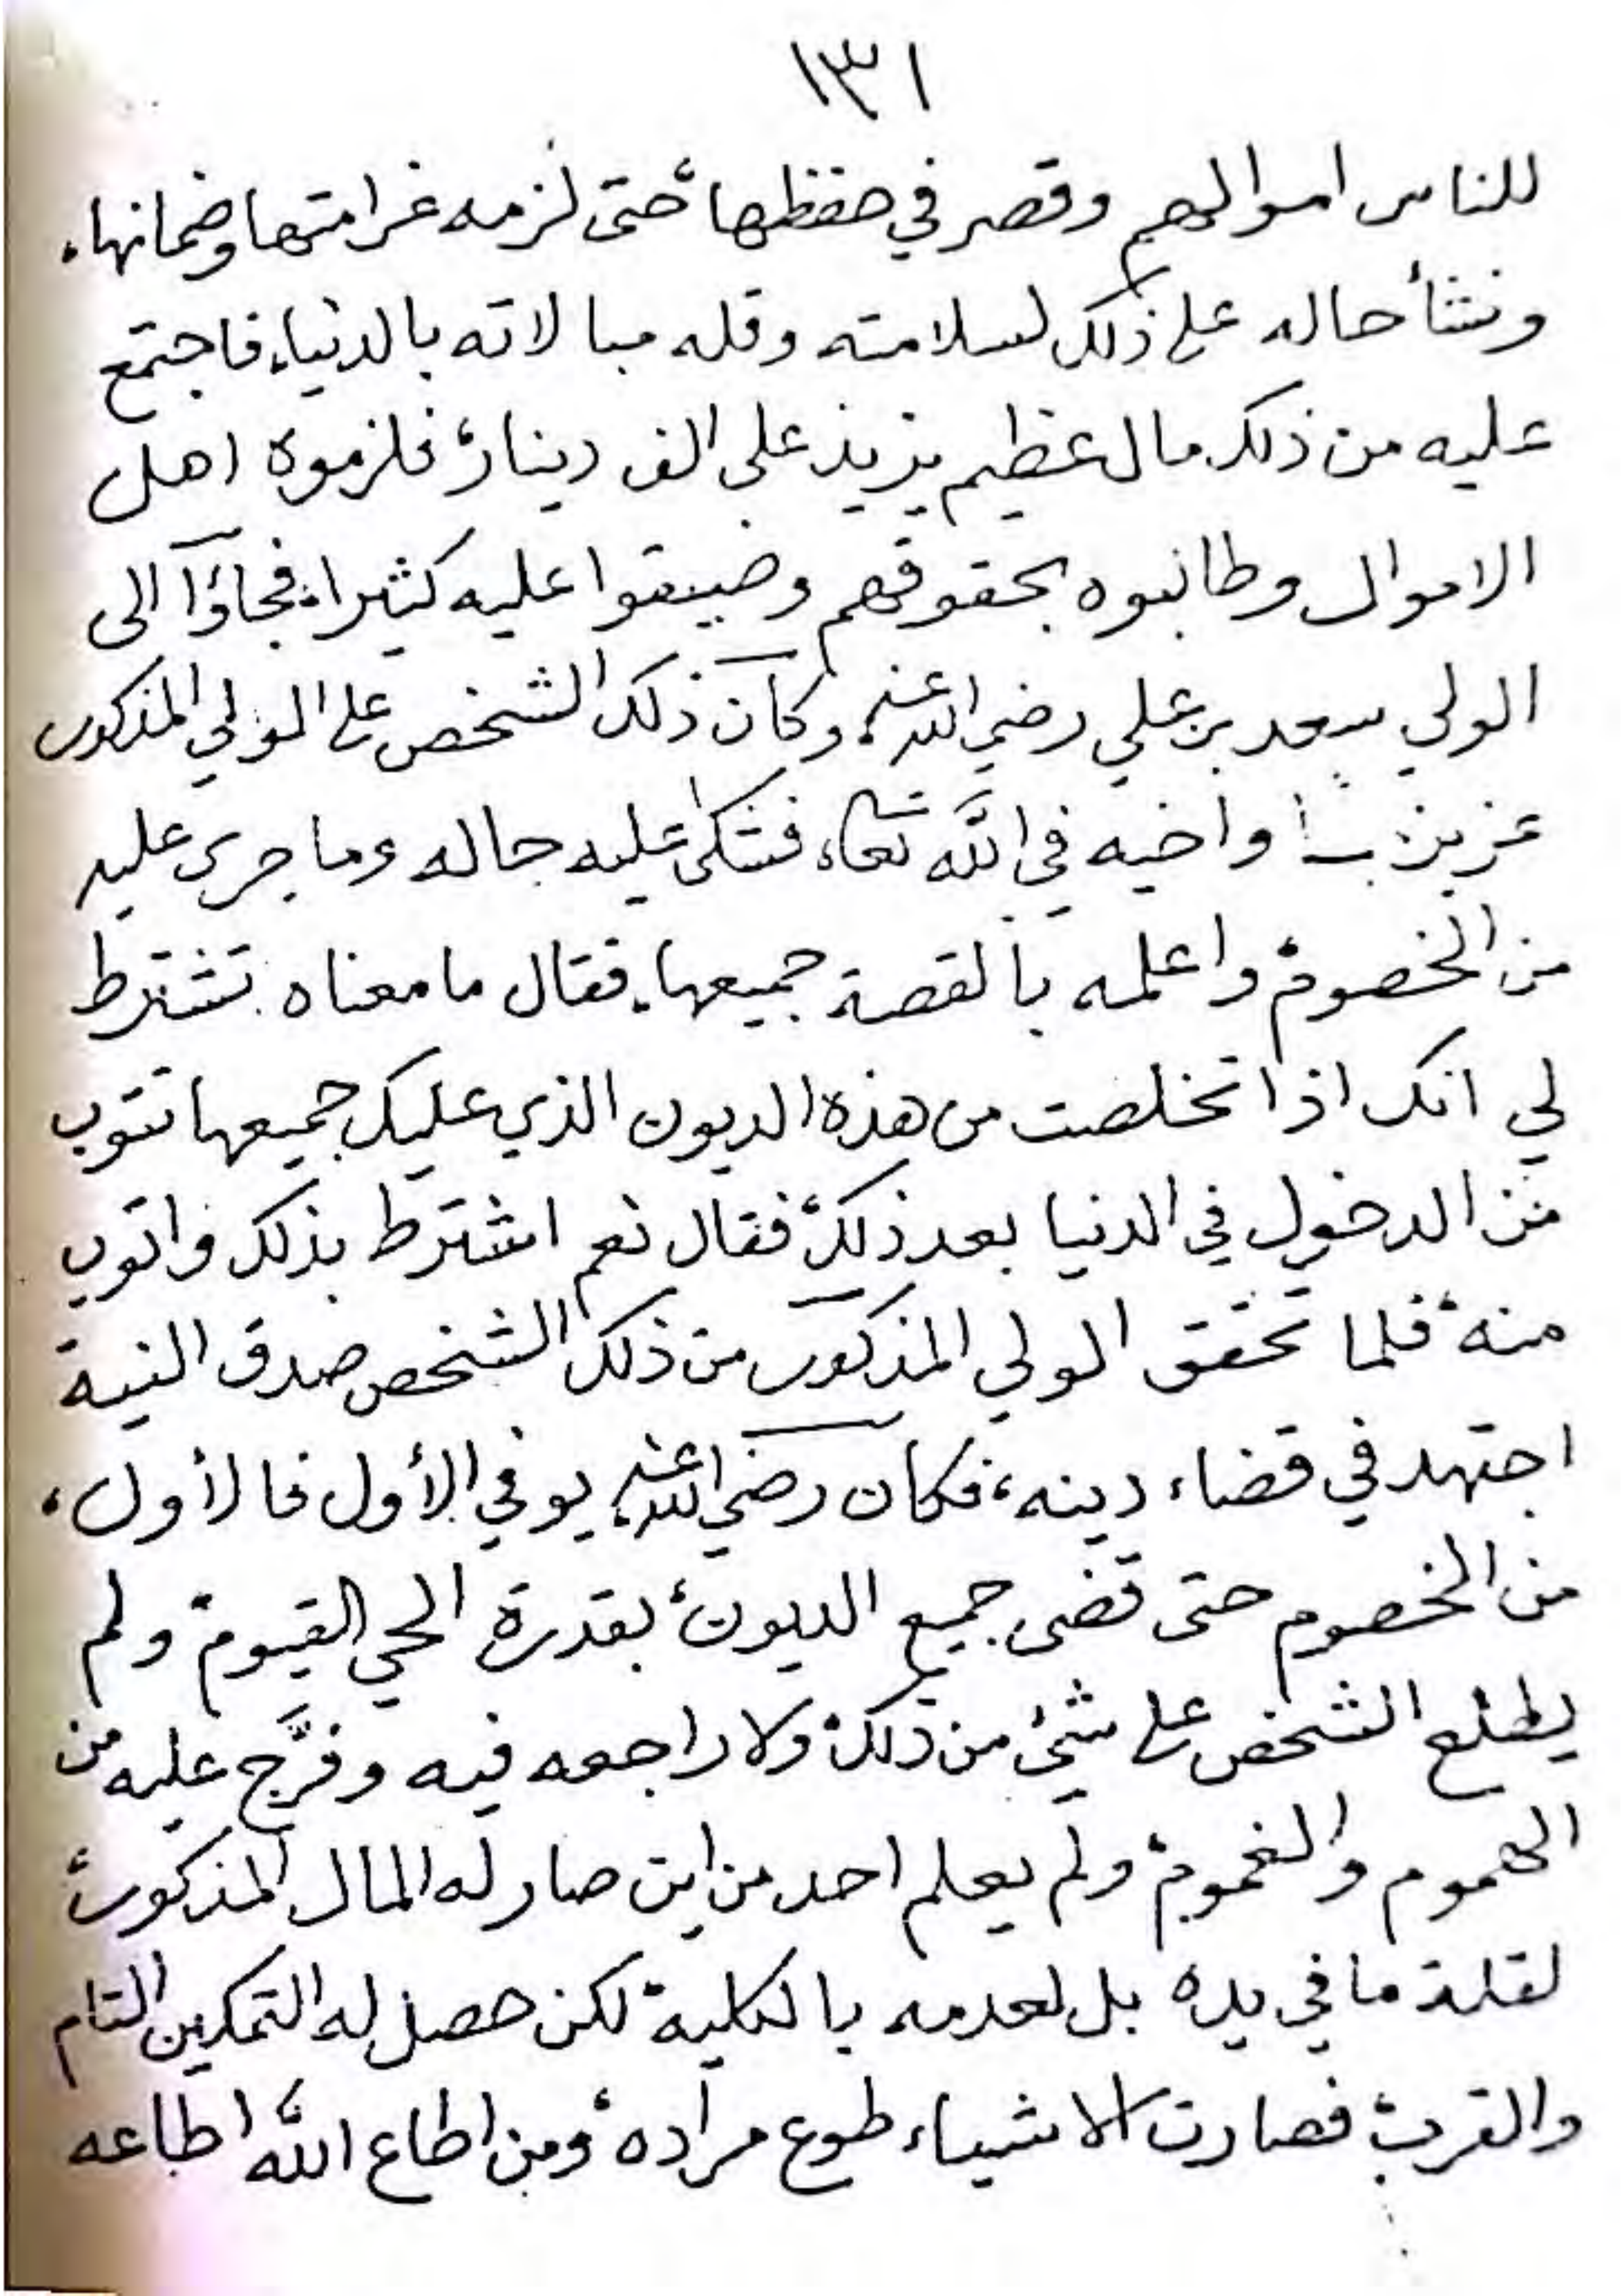 ١٣١
للناس اموالهم وقصر في حفظها، حتى لزمه غرامتها وضمانها،
ونشأ حاله على ذلك لسلامته وقله مبالاته بالدنيا، فاجتمع
عليه من ذلك مال عظيم يزيد على الف دينار، فلزموه اهل
الاموال وطالبوه بحقوقهم وضيقوا عليه كثيرا، فجاؤآ الى
الولي سعد بن علي رضي الله عنه، وكان ذلك الشخص على الولي المذكور
عزيز واخيه في الله تعا، فشكى عليه حاله وما جرى عليه
من الخصوم، واعلمه بالقصة جميعها، فقال ما معناه تشترط
لي انك اذا تخلصت من هذه الديون الذي عليك جميعها تتوب
من الدخول في الدنيا بعد ذلك، فقال نعم اشترط بذلك واتوب
منه، فلما تحقق الولي المذكور من ذلك الشخص صدق النية
اجتهد في قضاء دينه، فكان رضي الله عنه يوفي الأول فالأول،
من الخصوم حتى قضى جميع الديون، بقدرة الحي القيوم، ولم
يطلع الشخص على شيء من ذلك، ولا راجعه فيه وفرَّج عليه من
الهموم والغموم، ولم يعلم احد من اين صار له المال المذكور،
لقلة ما في يده بل لعدمه بالكلية، لكن حصل له التمكين التام
والقرب، فصارت الاشياء طوع مراده، ومن اطاع الله اطاعه